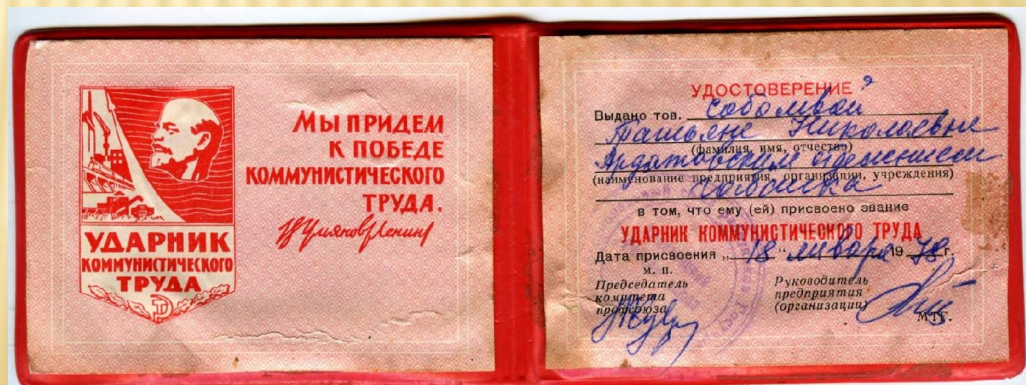 Мы придем
к победе
коммунистического
труда.
УДАРНИК
КОММУНИСТИЧЕСКОГО
ТРУДА
УДОСТОВЕРЕНИЕ
Выдано тов.
Татьяне Николаевне
(фамилия, имя, отчество)
Ардатовским
(наименование предприятия, организации, учреждения)
в том, что ему (ей) присвоено звание
УДАРНИК КОММУНИСТИЧЕСКОГО ТРУДА
Дата присвоения „18" января 1978 г.
м. п.
Председатель комитета профсоюза
Руководитель предприятия (организации)
МТГ.